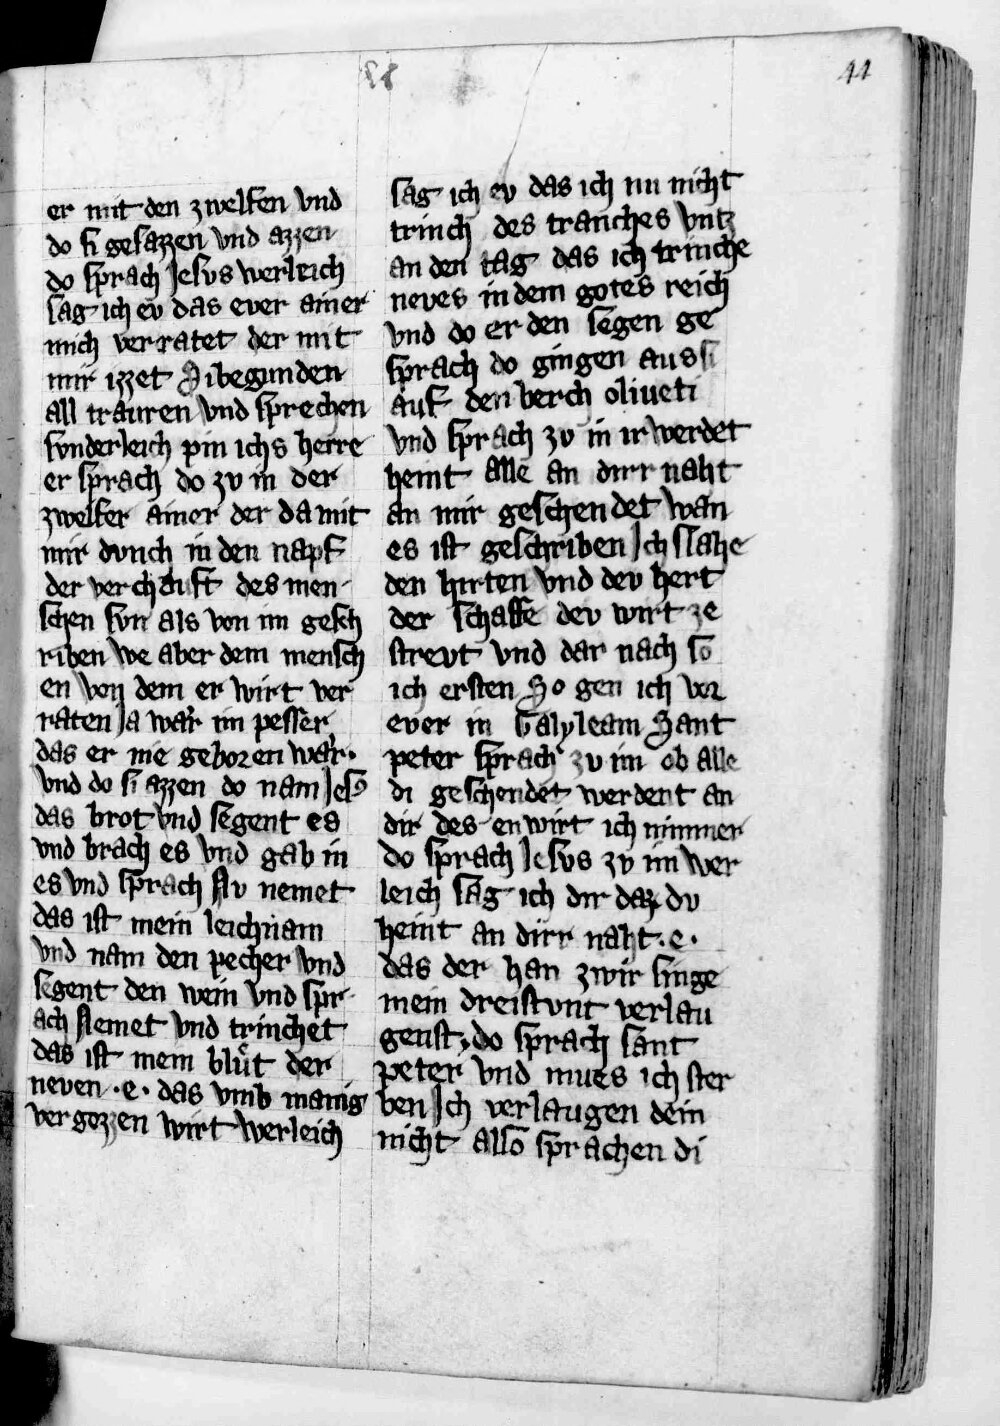 44
er mit den zwelfen vnd
do si gesazzen vnd azzen
do sprach Jesvs werleich
sag ich ev das ever ainer
mich verratet der mit
mir izzet Si begunden
all trauren vnd sprechen
svnderleich pin ichs herre
er sprach do zv in der
zwelfer ainer der da mit
mir dvnch in den napf
der verchauft des men
schen svn als von im gesch
riben we aber dem mensch
en von dem er wirt ver
raten Ja war im pesser
das er nie geboren war.
vnd do si azzen do nam Jesꝰ
das brot vnd segent es
vnd brach es vnd gab in
es vnd sprach Nv nemet
das ist mein leichnam
vnd nam den pecher vnd
segent den wein vnd spr
ach Nemet vnd trinchet
das ist mein blůt der
neven .e. das vmb manig
vergozzen wirt werleich
sag ich ev das ich nu nicht
trinch des tranches vntz
an den tag das ich trinche
neves in dem gotes reich
vnd do er den segen ge
sprach do gingen auss si
auf den berch oliueti
vnd sprach zv in ir werdet
heint alle an dirr naht
an mir geschendet wan
es ist geschriben Jch slahe
den hirten vnd dev hert
der schaffe dev wirt ze
strevt vnd dar nach so
ich ersten So gen ich vor
ever in Galyleam Sant
peter sprach zv im ob alle
di geschendet werdent an
dir des enwirt ich nimmer
do sprach Jesvs zv im wer
leich sag ich dir daz dv
heint an dirr naht .e.
das der han zwir singe
mein dreistvnt verlau
genst do sprach sant
peter vnd mues ich ster
ben Jch verlaugen dein
nicht also sprachen di